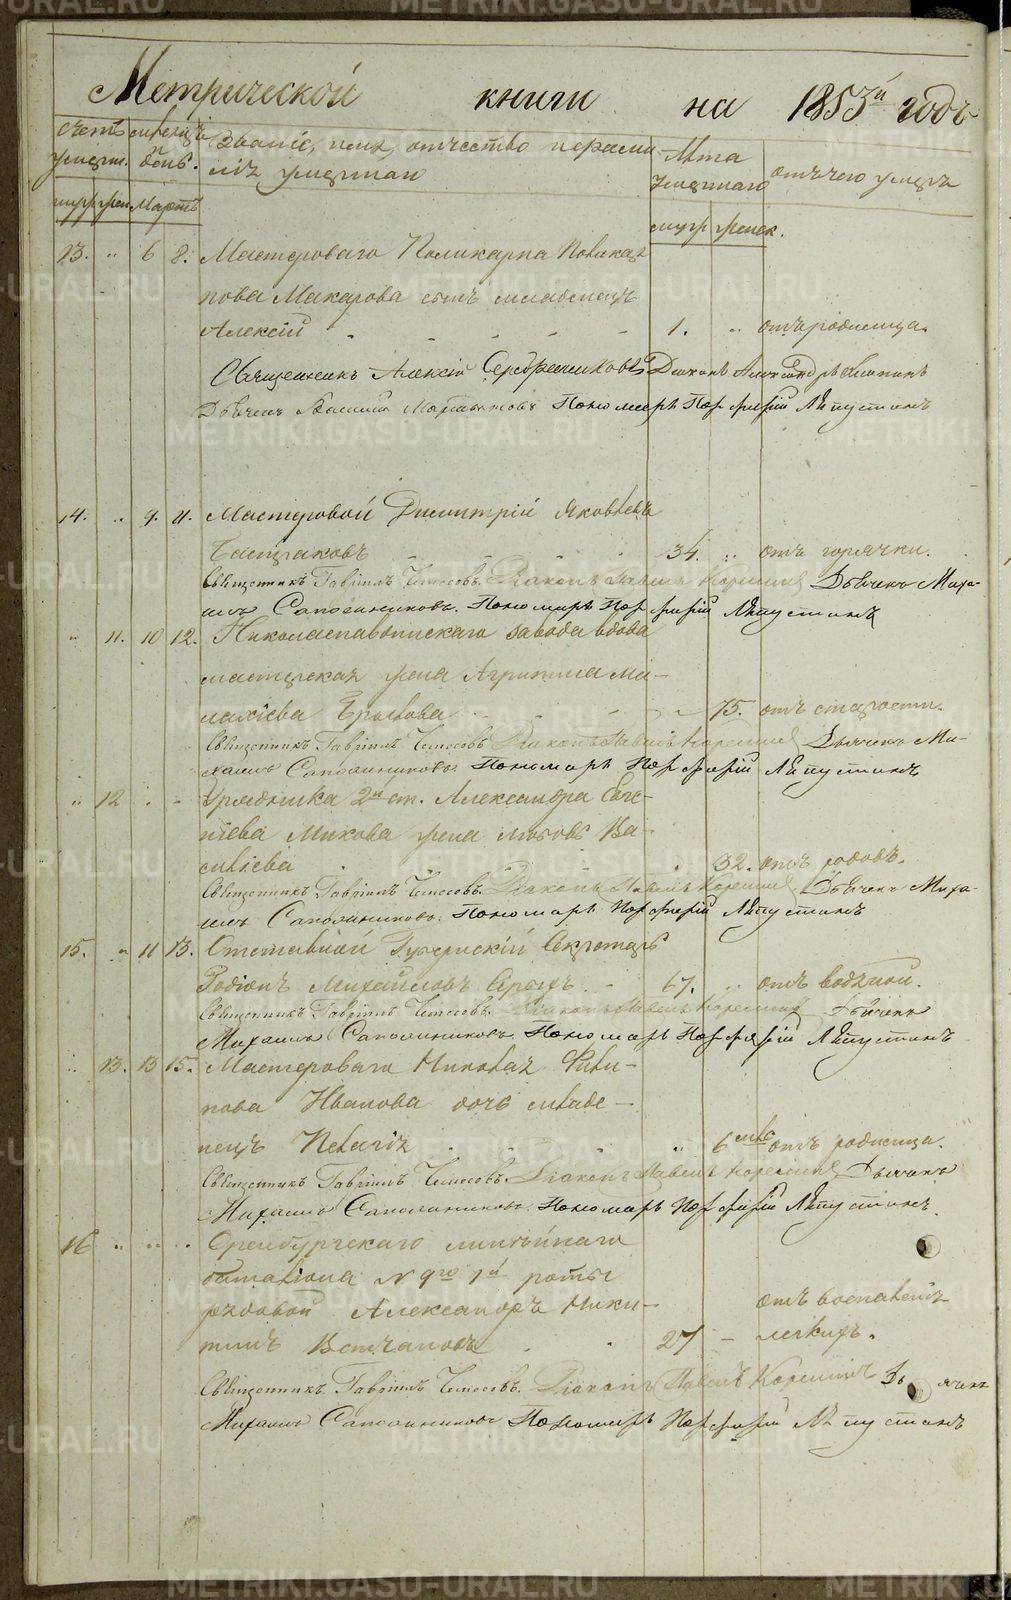 Метрической книги на 1853й годъ
счетъ умерш. месяцъ день. Званіе, имя, отчество и фами-
лія умершаго
Лѣта умершаго
отъ чего умеръ
муж жен Мартъ
муж женск.
13. " 6 8. Мастероваго Поликарпа
пова Макарова сынъ младенецъ
Алексій - - - - - 1. " отъ родимца.
Священникъ Алексій Серебренниковъ Діаконъ Александръ
Дьячекъ Василій Мартыновъ Пономарь Порфирій Лѣпустинъ
14. " 9. 11. Мастеровой Димитрій Яковлевъ
34. " отъ горячки.
Священникъ Гавріилъ Діаконъ Павелъ Дьячекъ Миха-
илъ Сапожниковъ. Пономарь Порфирій Лѣпустинъ
" 11. 10 12. Николаепавдинскаго завода вдова
мастерская жена Агрипина Ма-
лахіева 75. отъ старости.
Священникъ Гавріилъ Діаконъ Павелъ Дьячекъ Ми-
хаилъ Сапожниковъ. Пономарь Порфирій Лѣпустинъ
" 12 " - Урядника 2й ст. Александра Евге-
ніева Микова жена Любовь Ва-
сильева " 32. отъ родовъ.
Священникъ Гавріилъ Діаконъ Павелъ Дьячекъ Миха-
илъ Сапожниковъ. Пономарь Порфирій Лѣпустинъ
15. " 11 13. Отставной Губернскій Секретарь
Родіонъ Михайловъ - 67. " отъ водяной.
Священникъ Гавріилъ Діаконъ Павелъ Дьячекъ
Михаилъ Сапожниковъ Пономарь Порфирій Лѣпустинъ
" 13. 13 15. Мастероваго Николая Фили-
пова Иванова дочь младе-
нецъ Пелагія " 6 отъ родимца.
Священникъ Гавріилъ Діаконъ Павелъ Дьячекъ
Михаилъ Сапожниковъ Пономарь Порфирій Лѣпустинъ.
16 " " " Оренбургскаго линѣйнаго
баталіона N 9го 1й роты
рядовой Александръ Ники-
тинъ 27 - отъ воспаленія
легкихъ.
Священникъ Гавріилъ Діаконъ Павелъ Дьячекъ
Михаилъ Сапожниковъ Пономарь Порфирій Лѣпустинъ
METRIKI.GASO-URAL.RU